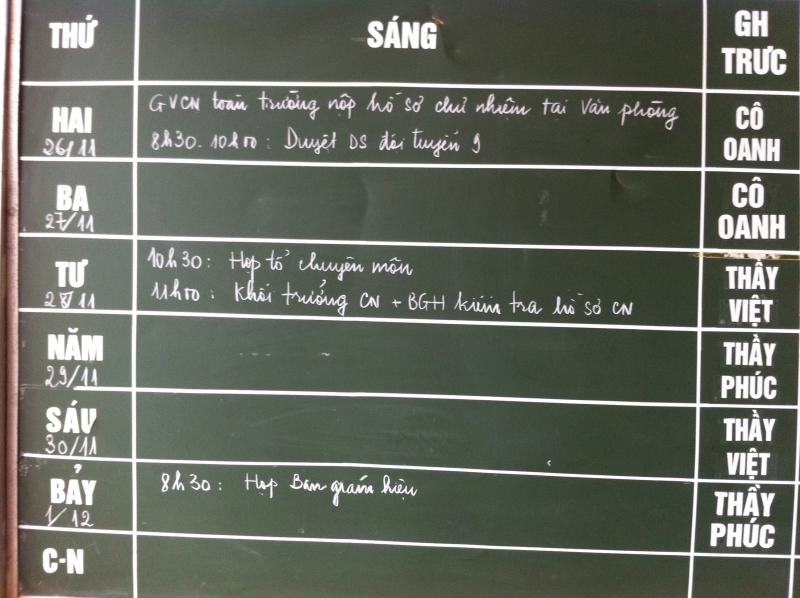 THỨ
SÁNG
GH
TRƯC
HAI
26/11
GVCN toàn trường nộp hồ sơ chủ nhiệm tại Văn phòng
8h30-10h00: Duyệt DS đội tuyển 9
CÔ
OANH
BA
27/11
CÔ
OANH
TƯ
28/11
10h30: Họp tổ chuyên môn
11h00: Khối trưởng CN + BGH kiểm tra hồ sơ CN
THẦY
VIỆT
NĂM
29/11
THẦY
PHÚC
SÁU
30/11
THẦY
VIỆT
BẢY
1/12
8h30: Họp Ban giám hiệu
THẦY
PHÚC
C-N